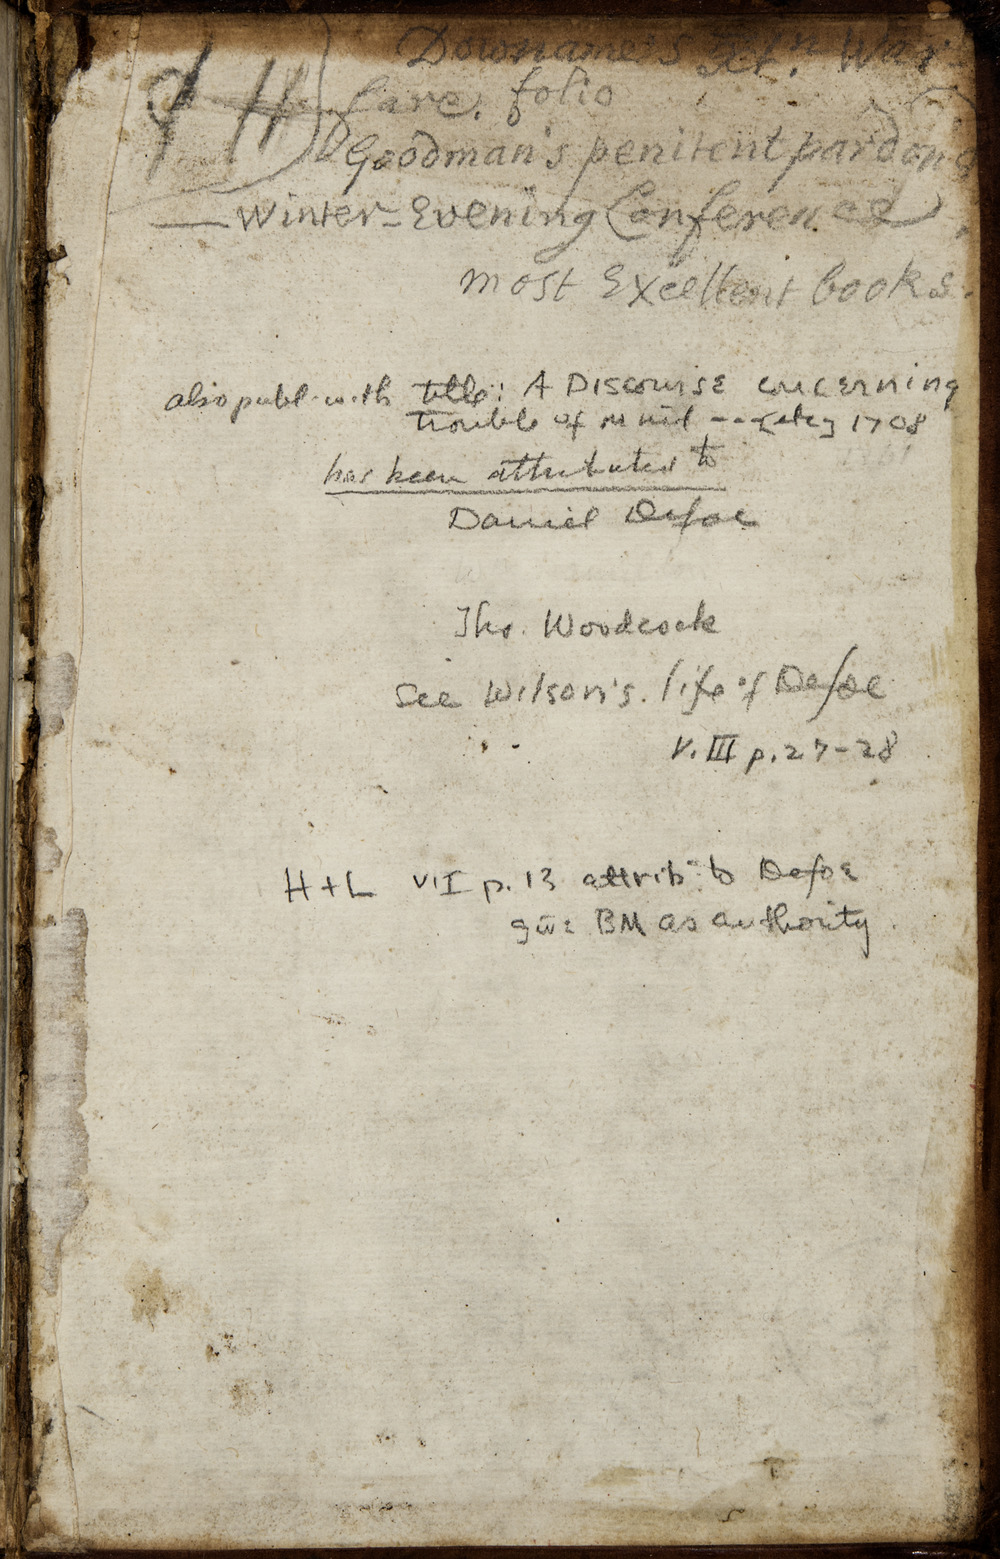 Downame's Xn. War-
fare. folio
Goodman's penitent pardoned
— Winter-Evening Conference
most Excellent books.
also publ. with title: A Discourse concerning
trouble of mind --- [etc] 1708
has been attributed to
Daniel Defoe
Tho. Woodcock
See Wilson's. life of Defoe
V. III p. 27-28
H + L V. I p. 13 attrib. to Defoe
BM as authority